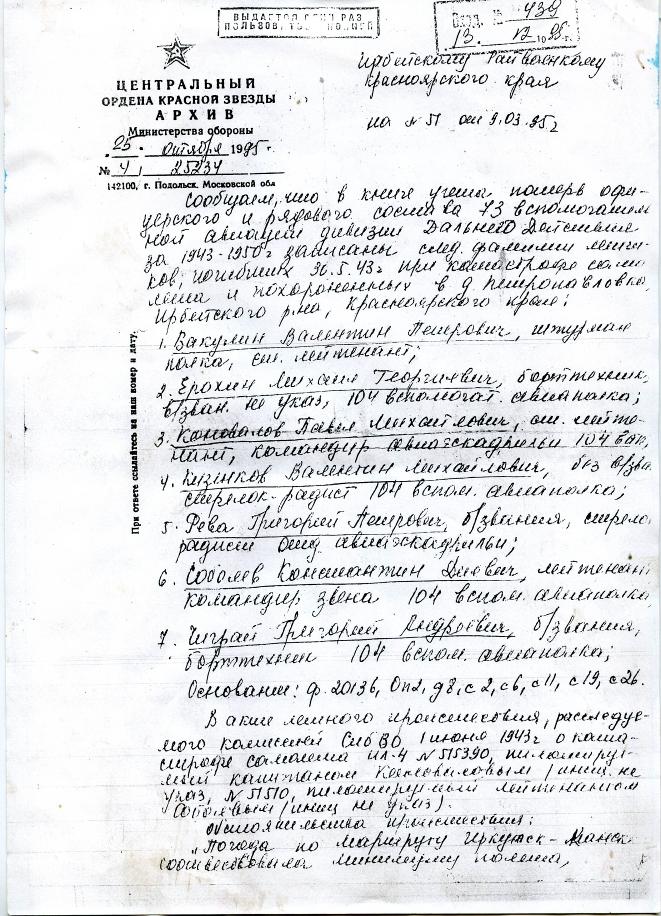 ВЫДАЕТСЯ ОДИН РАЗ
Вход. № 439
13. 12 1995г.
ЦЕНТРАЛЬНЫЙ
ОРДЕНА КРАСНОЙ ЗВЕЗДЫ
АРХИВ
Министерства обороны
"25" октября 1995 г.
№ 4/ 25234
142100, г. Подольск, Московской обл
Ирбейскому Райвоенкому
Красноярского края
на № 51 от 9.03.95г
При ответе ссылайтесь на наш номер и дату.
Сообщаем, что в книге учета потерь офи-
церского и рядового состава 73 вспомогатель
ной авиации дивизии Дальнего Действия
за 1943-1950г записаны след. фамилии летчи-
ков, погибших 30.5.43г при катастрофе само
лета и похороненных в д. Петропавловка,
Ирбейского р-на, Красноярского края:
1. Вакулин Валентин Петрович, штурман
полка, ст. лейтенант;
2. Ерохин Михаил Георгиевич, борттехник,
в/зван. не указ, 104 вспомогат. авиаполка;
3. Коновалов Павел Михайлович, ст. лейте-
нант, командир авиаэскадрильи 104 всп.
4. Кизинков Валентин Михайлович, без в/зва
стрелок-радист 104 вспом. авиаполка;
5. Рева Григорий Петрович, б/звания, стрело
радист отд. авиаэскадрильи;
6. Соболев Константин, лейтенан
командир звена 104 вспом. авиаполка
7. Чиграй Григорий Андреевич, б/звания,
борттехник 104 вспом. авиаполка;
Основание: ф. 20136, Оп2, д8, с2, с6, с11, с19, с26.
В акте летного происшествия, расследуе-
мого комиссией СибВО 1 июня 1943г о ката-
строфе самолета ИЛ-4 № 515390, пилотируе-
мый капитаном Коноваловым /иниц. не
указ, № 51510, пилотируемый лейтенантом
Соболевым /иниц не указ).
Обстоятельства происшествия:
"Погода по маршруту Иркутск-Канск
соответствовала минимуму полета,